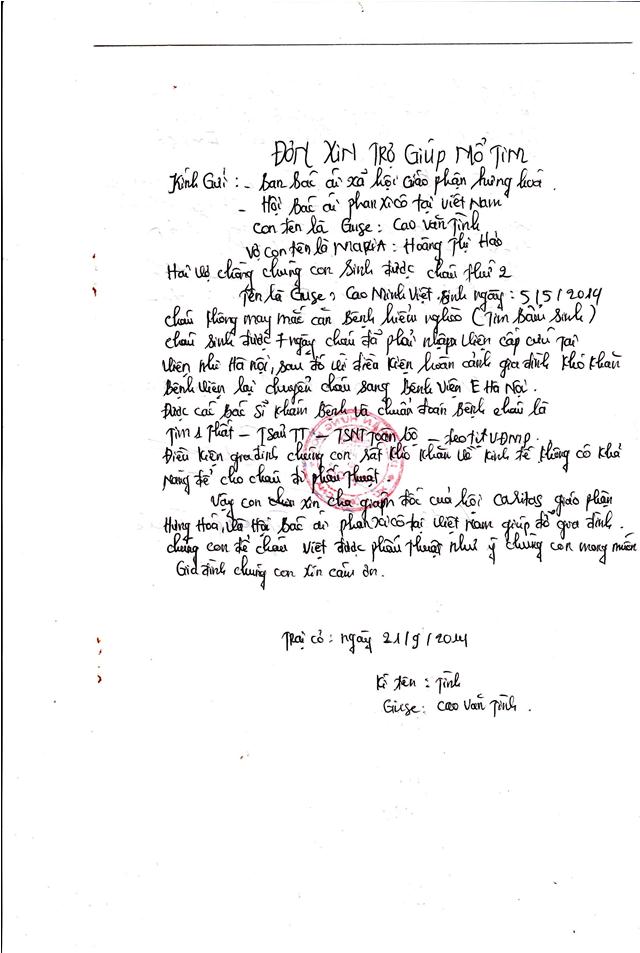 ĐƠN XIN TRỢ GIÚP MỔ TIM
Kính Gửi : - Ban Bác ái xã hội Giáo phận hưng hoá .
- Hội Bác ái phan xi cô tại việt Nam
con tên là Guse : Cao Văn Tình
Vợ con tên là MARIA : Hoàng Thị Hảo
Hai vợ chồng chúng con Sinh được cháu thứ 2
Tên là Guse : Cao Minh Việt, Sinh ngày : 5/5/2014
cháu không may mắc căn Bệnh hiểm nghèo (Tim Bẩm Sinh)
cháu sinh được 7 ngày cháu đã phải nhập viện cấp cứu tại
viện nhi Hà nội, sau đó vì điều kiện hoàn cảnh gia đình khó khăn
Bệnh viện lại chuyển cháu sang Bệnh Viện E Hà Nội .
Được các Bác Sĩ khám Bệnh và chuẩn đoán Bệnh cháu là
Tim 1 thất – TSNT Toàn bộ –
Điều kiện gia đình chúng con rất khó khăn về kinh tế không có khả
năng để cho cháu đi phẫu thuật .
Vậy con xin cha giám đốc của hội caritas giáo phận
Hưng Hoá, và Hội Bác ái phan xi cô tại việt Nam giúp đỡ gia đình .
chúng con để cháu Việt được phẫu thuật như ý chúng con mong muốn
Gia đình chúng con xin cảm ơn .
Trại cỏ : ngày 21/9/2014
Kí tên : Tình
Giuse : Cao Văn Tình .